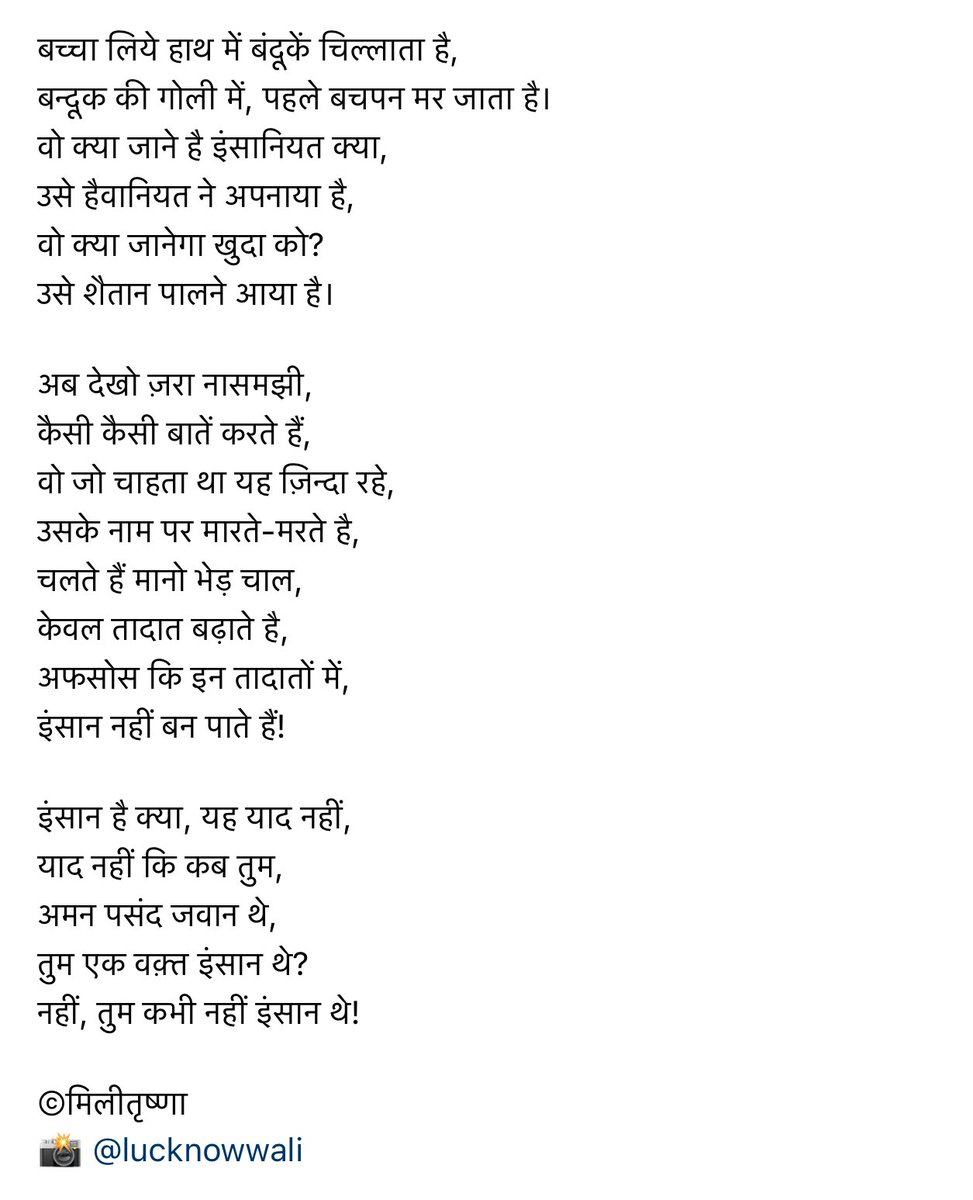 बच्चा लिये हाथ में बंदूकें चिल्लाता है,
बन्दूक की गोली में, पहले बचपन मर जाता है।
वो क्या जाने है इंसानियत क्या,
उसे हैवानियत ने अपनाया है,
वो क्या जानेगा खुदा को?
उसे शैतान पालने आया है।
अब देखो ज़रा नासमझी,
कैसी कैसी बातें करते हैं,
वो जो चाहता था यह ज़िन्दा रहे,
उसके नाम पर मारते-मरते है,
चलते हैं मानो भेड़ चाल,
केवल तादात बढ़ाते है,
अफसोस कि इन तादातों में,
इंसान नहीं बन पाते हैं!
इंसान है क्या, यह याद नहीं,
याद नहीं कि कब तुम,
अमन पसंद जवान थे,
तुम एक वक़्त इंसान थे?
नहीं, तुम कभी नहीं इंसान थे!
©मिलीतृष्णा
📸 @lucknowwali